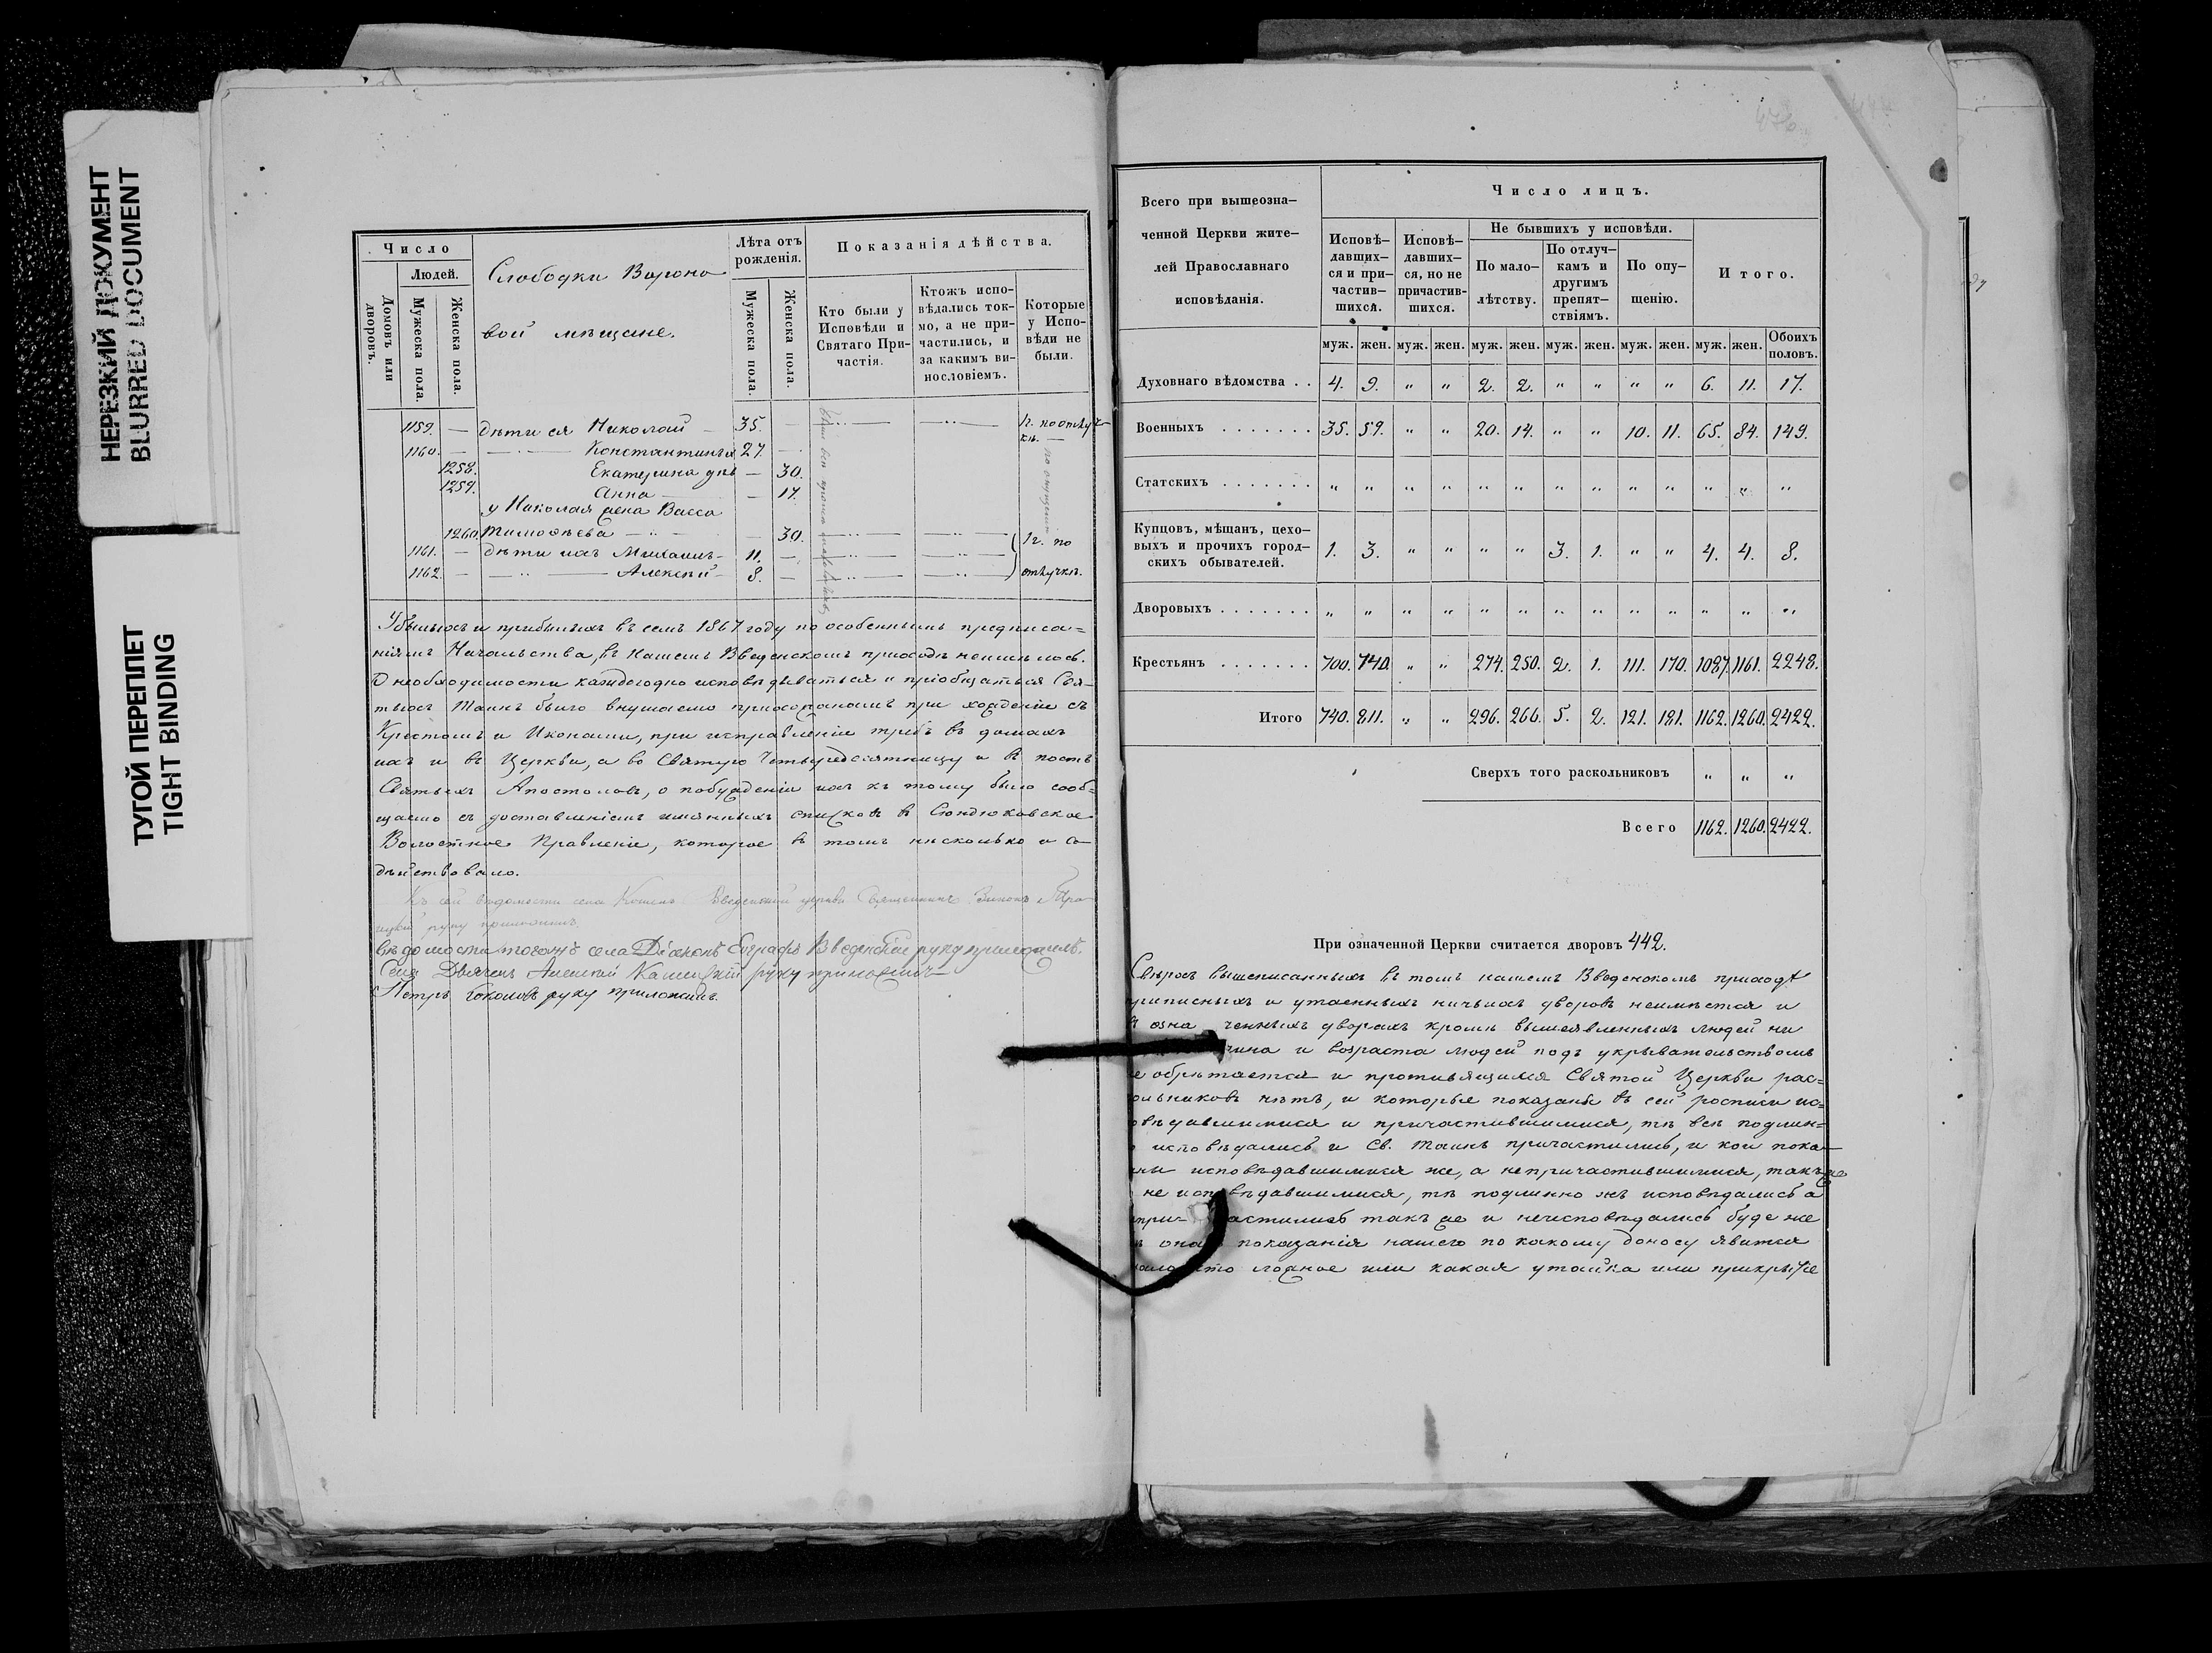 НЕРЕЗКИЙ ДОКУМЕНТ
BLURRED DOCUMENT
ТУГОЙ ПЕРЕПЛЕТ
TIGHT BINDING
Число
Людей.
Домовъ или дворовъ.
Мужеска пола.
Женска пола.
Слободки Вороно
вой мѣщане.
Лѣта отъ рожденія.
Мужеска пола.
Женска пола.
Показанія дѣйства.
Кто были у Исповѣди и Святаго При-частія.
Ктожъ испо-вѣдались ток-мо, а не при-частились, и за какимъ ви-нословіемъ.
Которые у Испо-вѣди не были.
1159. — дѣти ея Николай — 35. — 1г. по отлуч
кѣ.
1160. — Константинъ 27. —
1258. Екатерина — 30.
1259. Анна — 17.
у Николая жена Васса
1260. Тимоѳѣева — 30.
1161. — дѣти ихъ Михаилъ — 11. — 1г. по
1162. — Алексѣй — 8. — отлучкѣ.
Убылыхъ и прибылыхъ въ семъ 1867 году по особеннымъ предписа=
ніямъ Начальства, въ нашемъ Введенскомъ приходѣ неимѣлось.
О необходимости каждогодно исповѣдываться и пріобщаться Свя-
тыхъ Таинъ было внушаемо прихожанамъ при хожденіи съ
Крестомъ и Иконами, при исправленіи требъ въ домахъ
ихъ и въ Церкви, а во Святую Четыредесятницу и въ постъ
Святыхъ Апостоловъ, о побужденіи ихъ къ тому было сооб=
щаемо съ доставленіемъ имянныхъ списковъ въ Сюндюковское
Волостное Правленіе, которое въ томъ нисколько и со
дѣйствовало.
Къ сей вѣдомости села Введенской церкви Священникъ
руку приложилъ.
вѣдомости тогожъ села Діаконъ Евграфъ Введенскій руку приложилъ.
Дьячекъ Алексѣй руку приложилъ
Петръ Соколовъ руку приложилъ.
Всего при вышеозна-
ченной Церкви жите-
лей Православнаго
исповѣданія.
Число лицъ.
Исповѣ-давших-ся и при-частив-шихся.
Исповѣ-давших-ся, но не причастив-шихся.
Не бывшихъ у исповѣди.
По мало-лѣтству.
По отлуч-камъ и другимъ препят-ствіямъ.
По опу-щенію.
Итого.
муж. жен. муж. жен. муж. жен. муж. жен. муж. жен. муж. жен. Обоихъ половъ.
Духовнаго вѣдомства . . 4. 9. " " 2. 2. " " " " 6. 11. 17.
Военныхъ . . . . . . . 35. 59. " " 20. 14. " " 10. 11. 65. 84. 149.
Статскихъ . . . . . . . " " " " " " " " " " " " "
Купцовъ, мѣщанъ, цехо-
выхъ и прочихъ город-
скихъ обывателей. 1. 3. " " " " 3. 1. " " 4. 4. 8.
Дворовыхъ . . . . . . . " " " " " " " " " " " " "
Крестьянъ . . . . . . . 700. 740. " " 274. 250. 2. 1. 111. 170. 1087. 1161. 2248.
Итого 740. 811. " " 296. 266. 5. 2. 121. 181. 1162. 1260. 2422.
Сверхъ того раскольниковъ " " "
Всего 1162. 1260. 2422.
При означенной Церкви считается дворовъ 442.
Сверхъ вышеписанныхъ въ томъ нашемъ Введенскомъ приходѣ
приписныхъ и утаенныхъ ничьихъ дворовъ неимѣется и
озна ченныхъ дворахъ кромѣ вышеявленныхъ людей ни
чина и возраста людей подъ укрывательствомъ
обрѣтается и противящимся Святой Церкви рас=
ольниковъ нѣтъ, и которые показаны въ сей росписи ис=
овѣдавшимися и причастившимися, тѣ всѣ подлин=
исповѣдались и Св. Таинъ причастились, и кои пока-
исповѣдавшимися же, а непричастившимися, такъ же
не исповѣдавшимися, тѣ подлинно жъ исповѣдались а
при астились такъ же и неисповѣдались буде же
показанія нашего по какому доносу явится
что ложное или какая утайка или прикрытіе